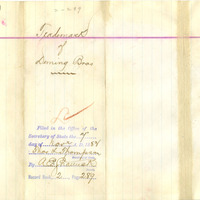 2-289
Trademark
of
Deming Bros
Filed in the Office of the
Secretary of State the 7
day of Nov 1884
Thompson
By
Record Book 2 Page 289